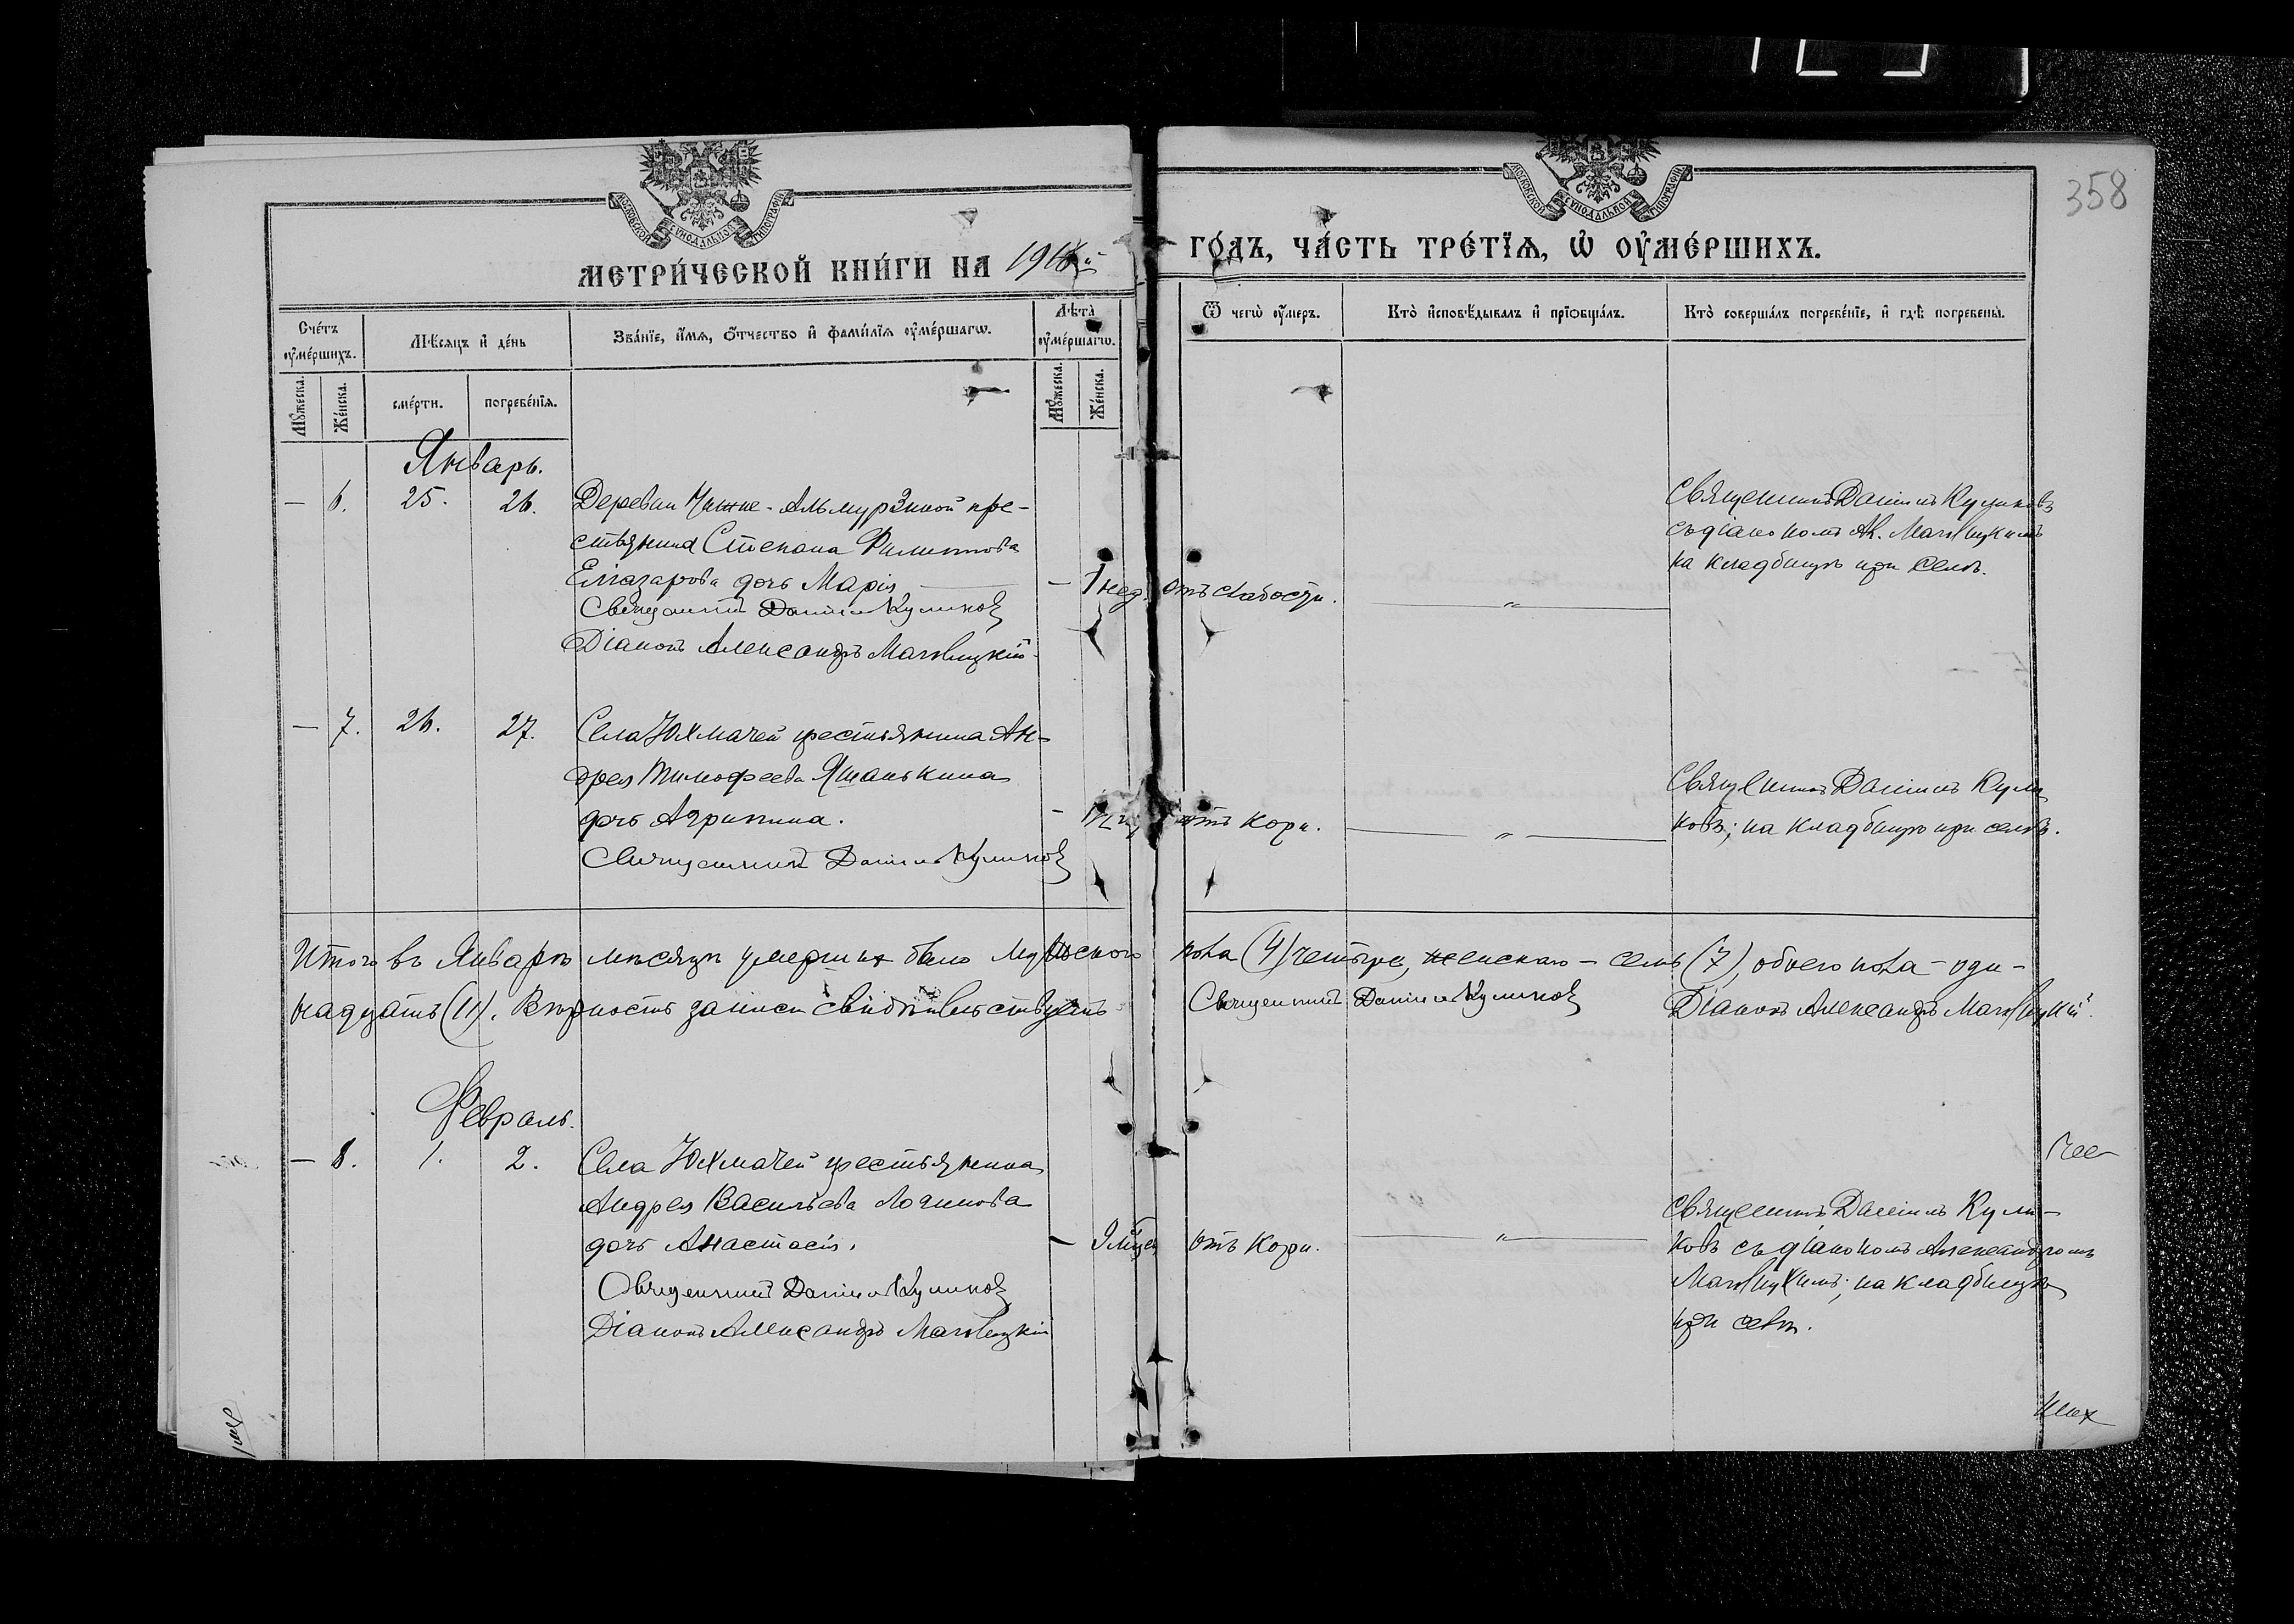 358
МЕТРИ́ЧЕСКОЙ КНИ́ГИ НА 191 й
ГО́ДЪ, ЧА́СТЬ ТРЕ́ТЇѦ, Ѡ҆ ОУ҆МЕ́РШИХЪ.
Сче́тъ оу҆ме́ршихъ.
Мꙋ́жеска.
Же́нска.
Мѣ́сѧцъ и҆ де́нь
сме́рти.
погребе́нїѧ.
Зва́нїе, и҆́мѧ, о҆́тчество и҆ фами́лїѧ оу҆ме́ршагѡ.
Лѣ́та оу҆ме́ршагѡ.
Мꙋ́жеска.
Же́нска.
Ѿ чегѡ̀ оу҆́меръ.
Кто̀ и҆сповѣ́дывалъ и҆ прїѡбща́лъ.
Кто̀ соверша́лъ погребе́нїе, и҆ гдѣ̀ погребены̀.
Январь.
— 6. 25. 26. Деревни Нижне-Альмурзиной кре-
стьянина Степана Филиппова
Елиазарова дочь Марія — 1 нед. отъ слабости. — „ —
Священникъ Даніилъ Куликовъ
Діаконъ Александръ
Священникъ Даніилъ Куликовъ
съ діакономъ Ал.
на кладбищѣ при селѣ.
— 7. 26. 27. Села Юхмачей крестьянина Ан-
дрея Тимофеева Яшанькина
дочь Агрипина. — отъ кори. — „ —
Священникъ Даніилъ Куликовъ
Священникъ Даніилъ Кули
ковъ; на кладбищѣ при селѣ.
Итого въ Январѣ мѣсяцѣ умершихъ было мужеского пола (4) четыре, женскаго — семь (7), обоего пола — оди-
надцать (11). Вѣрность записи свидѣтельствуемъ Священникъ Даніилъ Куликовъ Діаконъ Александръ
Февраль.
— 8. 1. 2. Села Юхмачей крестьянина
Андрея Васильева Логинова
дочь Анастасія. — 9 мѣсяц отъ кори. — „ —
Священникъ Даніилъ Куликовъ
Діаконъ Александръ
Священникъ Даніилъ Кули-
ковъ съ діакономъ Александромъ
на кладбищѣ
при селѣ.